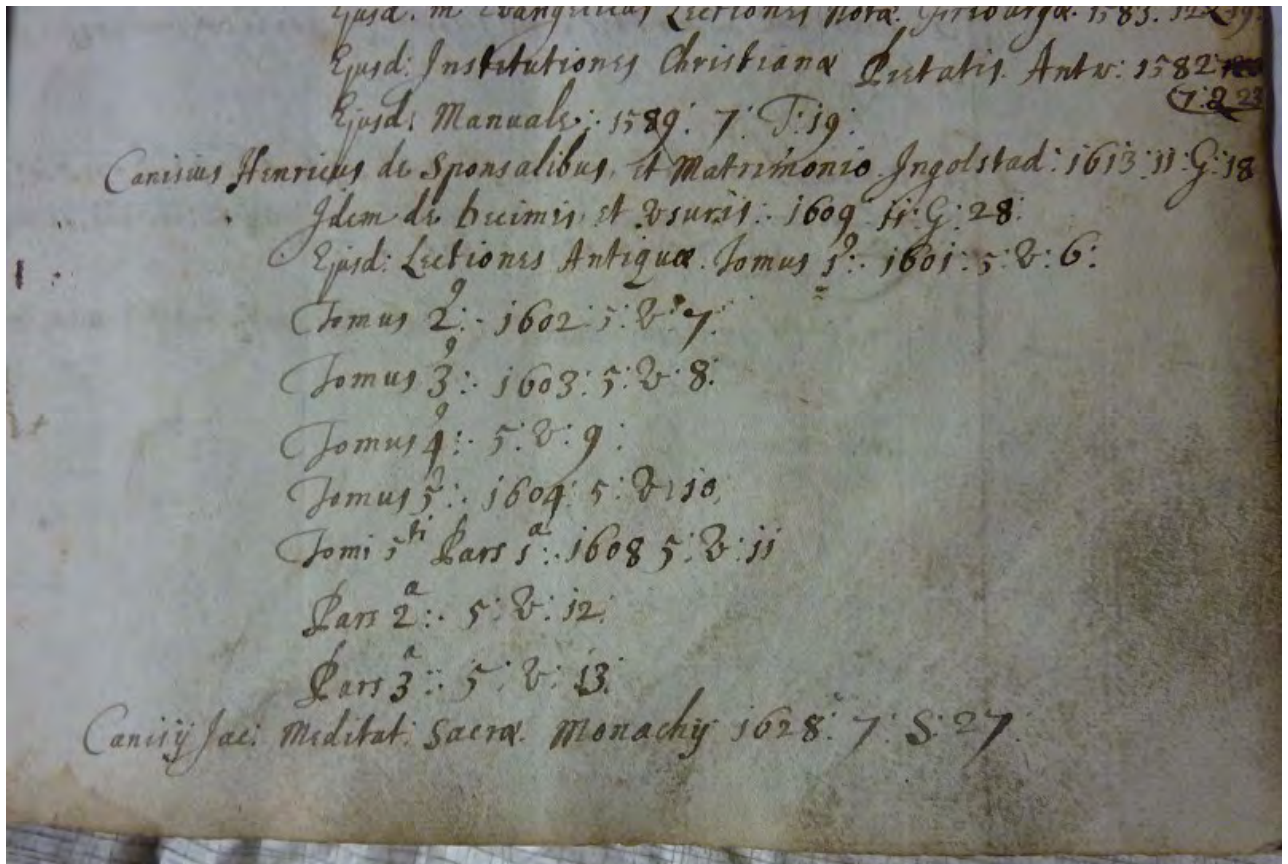 Ejusd. in Evangelicas Lectiones Notæ. Friburgæ. 1583.
Ejusd: Institutiones Christianæ Pietatis. Antw: 1582
7: Q 23
Ejusd: Manuale: 1589: 7: T: 19:
Canisius Henricus de Sponsalibus, et Matrimonio Ingolstad: 1613: 11: G: 18
Idem de Decimis et Usuris: 1609 11: G: 28:
Ejusd: Lectiones Antiquæ. Tomus 1ꝰ: 1601: 5: V: 6:
Tomus 2ꝰ: 1602: 5: V: 7:
Tomus 3ꝰ: 1603: 5: V: 8:
Tomus 4ꝰ: 5: V: 9:
Tomus 5ꝰ: 1604: 5: V: 10:
Tomi 5ti Pars 1a: 1608 5: V: 11
Pars 2a: 5: V: 12:
Pars 3a: 5: V: 13:
Canisij Jac: Meditat: Sacræ. Monachij 1628: 7: S: 27: